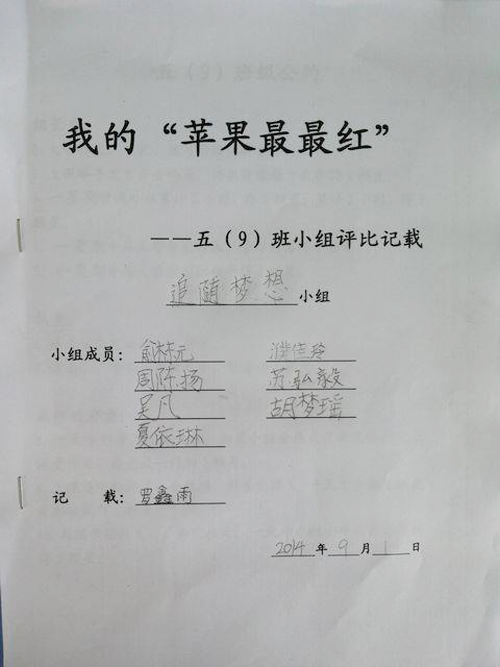 我的“苹果最最红”
——五（9）班小组评比记载
追随梦想小组
小组成员：俞林元 濮佳玲
周陈扬 苏弘毅
吴凡 胡梦瑶
夏依琳
记 载：罗鑫雨
2014年9月1日